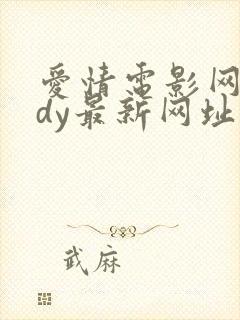 爱情电影网a
dy最新网址
武麻